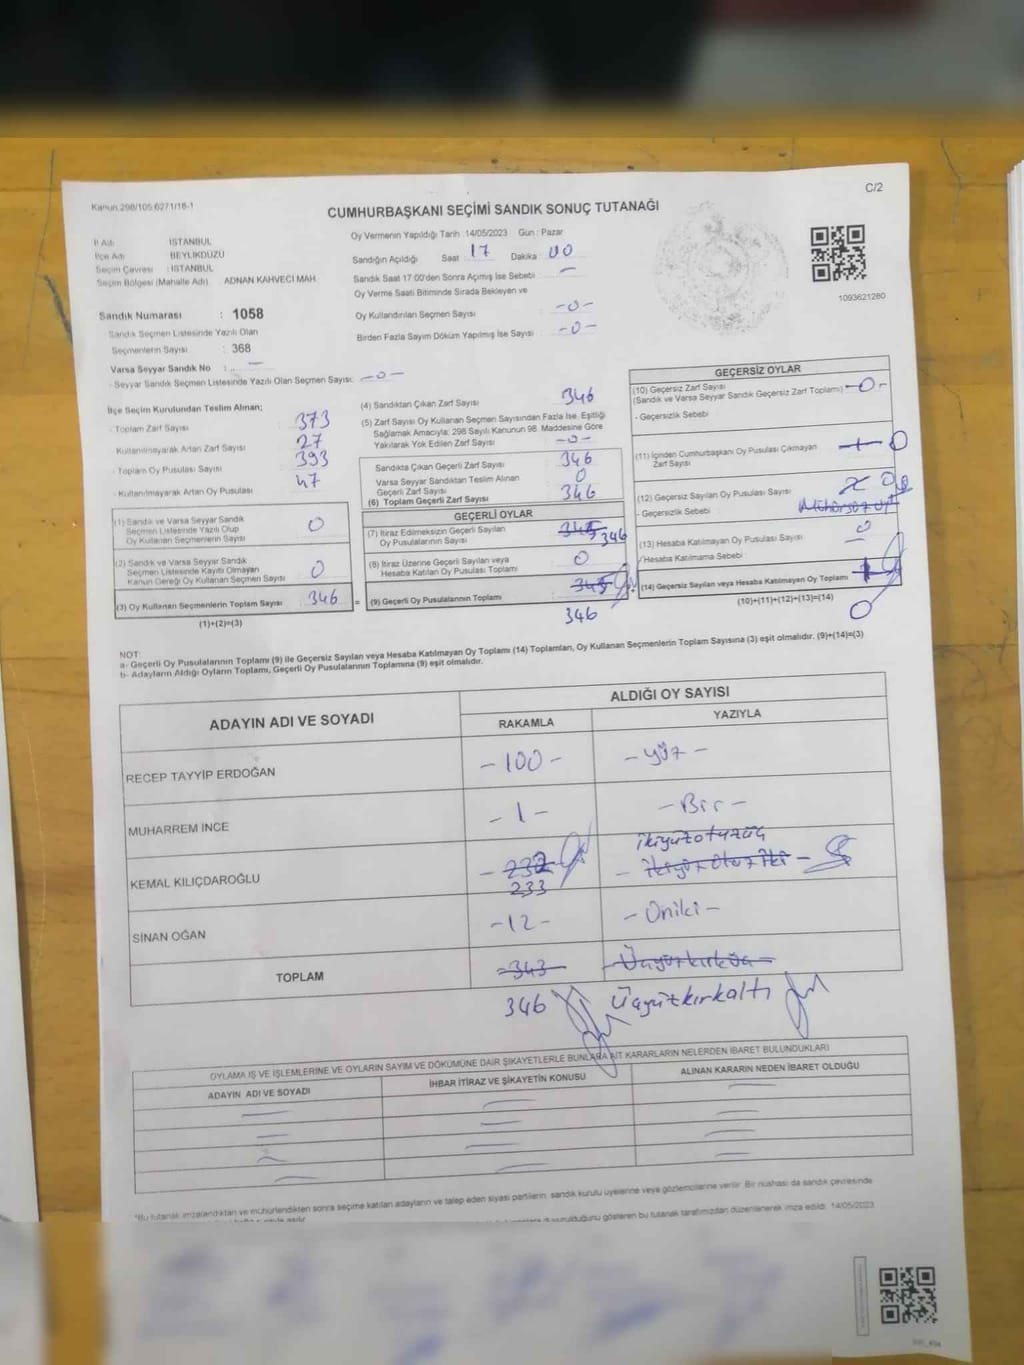 Kanun 298/105.6271/18-1
C/2
CUMHURBAŞKANI SEÇİMİ SANDIK SONUÇ TUTANAĞI
İl Adı İSTANBUL
İlçe Adı BEYLİKDÜZÜ
Seçim Çevresi : İSTANBUL
Seçim Bölgesi (Mahalle Adı) ADNAN KAHVECİ MAH.
Sandık Numarası : 1058
Sandık Seçmen Listesinde Yazılı Olan
Seçmenlerin Sayısı : 368
Varsa Seyyar Sandık No : .. —
- Seyyar Sandık Seçmen Listesinde Yazılı Olan Seçmen Sayısı: -0-
Oy Vermenin Yapıldığı Tarih :14/05/2023 Gün : Pazar
Sandığın Açıldığı Saat 17 Dakika 00
Sandık Saat 17:00'den Sonra Açmış İse Sebebi —
Oy Verme Saati Bitiminde Sırada Bekleyen ve
Oy Kullandırılan Seçmen Sayısı -0-
Birden Fazla Sayım Döküm Yapılmış İse Sayısı -0-
1093621280
İlçe Seçim Kurulundan Teslim Alınan;
- Toplam Zarf Sayısı 373
Kullanılmayarak Artan Zarf Sayısı 27
- Toplam Oy Pusulası Sayısı 393
- Kullanılmayarak Artan Oy Pusulası 47
(1) Sandık ve Varsa Seyyar Sandık
Seçmen Listesinde Yazılı Olup
Oy Kullanan Seçmenlerin Sayısı 0
(2) Sandık ve Varsa Seyyar Sandık
Seçmen Listesinde Kayıtlı Olmayan
Kanun Gereği Oy Kullanan Seçmen Sayısı 0
(3) Oy Kullanan Seçmenlerin Toplam Sayısı 346 =
(1)+(2)=(3)
(4) Sandıktan Çıkan Zarf Sayısı 346
(5) Zarf Sayısı Oy Kullanan Seçmen Sayısından Fazla İse, Eşitliği
Sağlamak Amacıyla; 298 Sayılı Kanunun 98. Maddesine Göre
Yakılarak Yok Edilen Zarf Sayısı -0-
Sandıkta Çıkan Geçerli Zarf Sayısı 346
Varsa Seyyar Sandıktan Teslim Alınan
Geçerli Zarf Sayısı 0
(6) Toplam Geçerli Zarf Sayısı 346
GEÇERLİ OYLAR
(7) İtiraz Edilmeksizin Geçerli Sayılan
Oy Pusulalarının Sayısı 345 346
(8) İtiraz Üzerine Geçerli Sayılan veya
Hesaba Katılan Oy Pusulası Toplamı 0
(9) Geçerli Oy Pusulalarının Toplamı 345
346
GEÇERSİZ OYLAR
(10) Geçersiz Zarf Sayısı
(Sandık ve Varsa Seyyar Sandık Geçersiz Zarf Toplamı) -0-
- Geçersizlik Sebebi
(11) İçinden Cumhurbaşkanı Oy Pusulası Çıkmayan
Zarf Sayısı 0
(12) Geçersiz Sayılan Oy Pusulası Sayısı 0
- Geçersizlik Sebebi Mühürsüz oy
(13) Hesaba Katılmayan Oy Pusulası Sayısı 0
Hesaba Katılmama Sebebi
(14) Geçersiz Sayılan veya Hesaba Katılmayan Oy Toplamı 1
(10)+(11)+(12)+(13)=(14) 0
NOT:
a- Geçerli Oy Pusulalarının Toplamı (9) ile Geçersiz Sayılan veya Hesaba Katılmayan Oy Toplamı (14) Toplamları, Oy Kullanan Seçmenlerin Toplam Sayısına (3) eşit olmalıdır. (9)+(14)=(3)
b- Adayların Aldığı Oyların Toplamı, Geçerli Oy Pusulalarının Toplamına (9) eşit olmalıdır.
ADAYIN ADI VE SOYADI ALDIĞI OY SAYISI
RAKAMLA YAZIYLA
RECEP TAYYİP ERDOĞAN -100- -yüz-
MUHARREM İNCE -1- -Bir-
KEMAL KILIÇDAROĞLU - 232 - ikiyüzotuzüç
233 - ikiyüz otuz iki -
SİNAN OĞAN -12- -Oniki-
TOPLAM -343- - Üçyüzkırküç -
346 Üçyüzkırkaltı
OYLAMA İŞ VE İŞLEMLERİNE VE OYLARIN SAYIM VE DÖKÜMÜNE DAİR ŞİKAYETLERLE BUNLARA AİT KARARLARIN NELERDEN İBARET BULUNDUKLARI
ADAYIN ADI VE SOYADI İHBAR İTİRAZ VE ŞİKAYETİN KONUSU ALINAN KARARIN NEDEN İBARET OLDUĞU
*Bu tutanak imzalandıktan ve mühürlendikten sonra seçime katılan adayların ve talep eden siyasi partilerin, sandık kurulu üyelerine veya gözlemcilerine verilir. Bir nüshası da sandık çevresinde
duyurulduğunu gösteren bu tutanak tarafımızdan düzenlenerek imza edildi. 14/05/2023